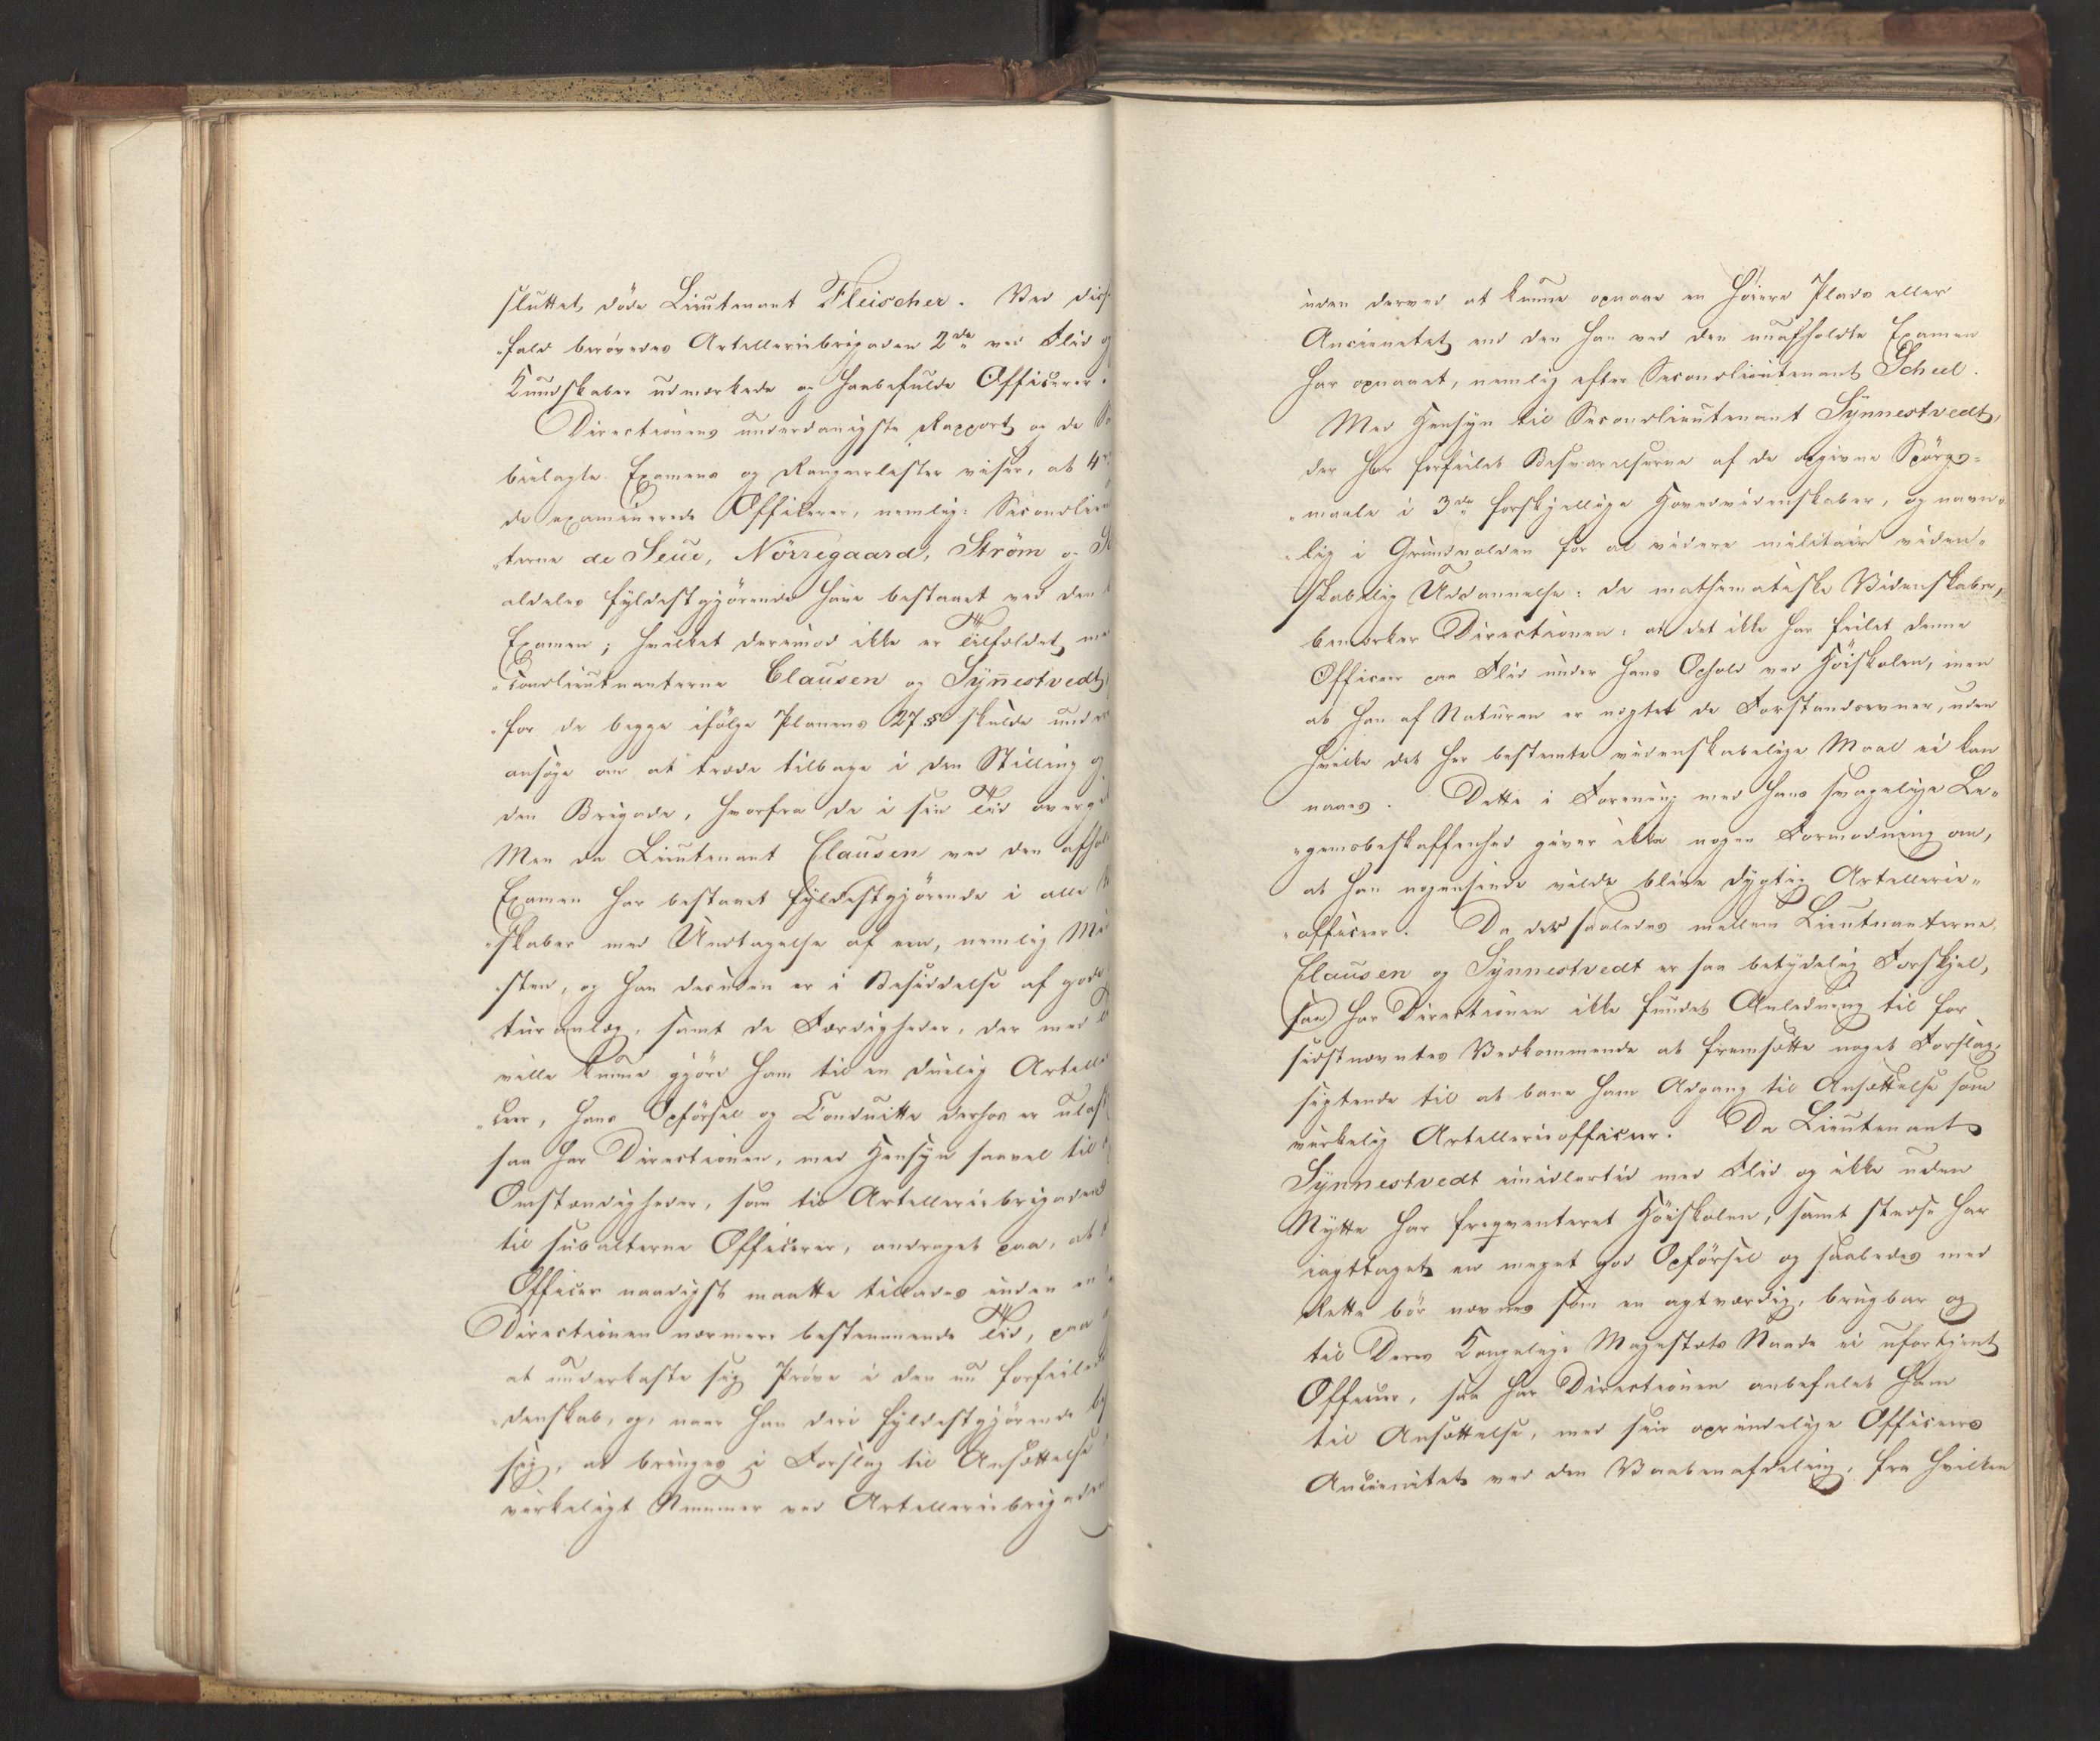 sluttet, döde Lieutenant Fleischer. Ved disse
„fald berövedes Artilleriebrigaden 2de ved Flid og
Kundskaber udmærkede og haabefulde Officierer.
Directionens underdanigste Rapport og de
bielagte Examens og Rangeerlister viser, at 4re
de examinerede Officierer, nemlig: Secondlieu
„terne de Seue, Nörregaard, Ström og
aldeles fyldestgjörende have bestaaet ved den
Examen; hvilket derimod ikke er Tilfældet, med
„condlieutnanterne Clausen og Sÿnnestvedt,
„for de begge ifölge Planens 27 § skulde
ansöge om at træde tilbage i den Stilling og
den Brigade, hvorfra de i sin Tid
Men da Lieutenant Clausen ved den afhol
Examen har bestaaet fyldestgjörende i alle
„skaber med Undtagelse af een, nemlig
„sten, og han desuden er i Besiddelse af gode
„turanlæg, samt de Færdigheder, der med
ville kunne gjöre ham til en duelig Artille
„ceer, hans Opförsel og Conduitte derhos er
saa har Directionen, med Hensyn saavel til
Omstændigheder, som til Artilleriebrigadens
til subalterne Officierer, andraget paa, at
Officier naadigst maatte tillades inden en
Directionen nærmere bestemmende Tid, paa
at underkaste sig Pröve i den nu forfeilede
„denskab, og, naar han deri fyldestgjörende
sig, at bringes i Forslag til Ansættelse
virkeligt Nummer ved Artilleriebrigaden
uden derved at kunne opnaae en höiere Plads eller
Ancienetet, end den han ved den nu afholdte Examen
har opnaaet, nemlig efter Secondlieutenant Scheel.
Med Hensyn til Secondlieutenant Sÿnnestvedt,
der har forfeilet Besvarelserne af de opgivne Spörgs=
„maale i 3de forskjellige Hovedvidenskaber, og navn„
„lig i Grundvolden for al videre militair viden„
„skabelig Uddannelse: de mathematiske Videnskaber,
bemærker Directionen: at det ikke har feilet denne
Officeer paa Flid under hans Ophold ved Höiskolen, men
at han af Naturen er nægtet de Forstandsevner, uden
hvilke det her bestemte videnskabelige Maal ei kan
naaes. Dette i Forening med hans svagelige Le„
„gemsbeskaffenhed giver ikke nogen Formodning om,
at han nogensinde vilde blive dygtig Artillerie„
„officeer. Da der saaledes mellem Lieutnanterne
Clausen og Sÿnnestvedt er saa betydelig Forskjel,
saa har Directionen ikke fundet Anledning til for
sidstnævntes Vedkommende at fremsætte noget Forslag,
sigtende til at bane ham Adgang til Ansættelse som
virkelig Artillerieofficeer. Da Lieutenant
Sÿnnestvedt imidlertid med Flid og ikke uden
Nytte har freqventeret Höiskolen, samt stedse har
iagttaget en meget god Opförsel og saaledes med
Rette bör nævnes som en agtværdig, brugbar og
til Deres Kongelige Majestæts Naade ei ufortjent
Officeer, saa har Directionen anbefalet ham
til Ansættelse, med sin oprindelige Officeers
Ancienitet ved den Vaabenafdeling, fra hvilken